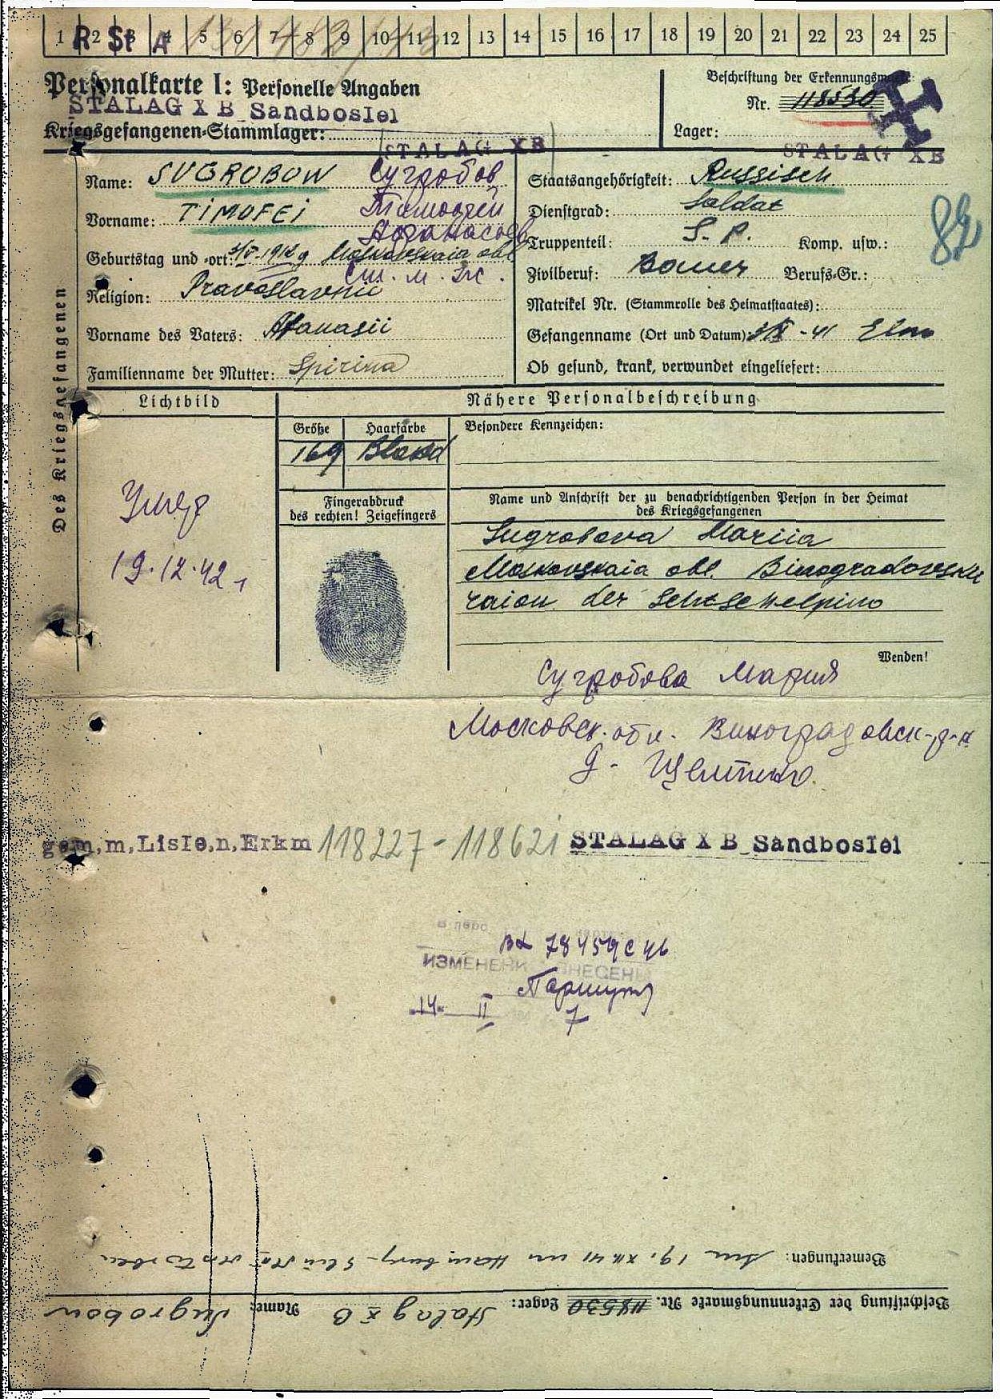 1 2 3 4 5 6 7 8 9 10 11 12 13 14 15 16 17 18 19 20 21 22 23 24 25
R St A
Personalkarte I: Personelle Angaben
STALAG X B Sandbostel
Kriegsgefangenen-Stammlager:
STALAG XB
Beschriftung der Erkennungsmarke
Nr. 118530
Lager:
STALAG XB
Des Kriegsgefangenen
Name: SUGROBOW Сугробов
Vorname: TIMOFEI Тимофей
Афанасьев
Geburtstag und -ort: Moskovskaia obl
Religion: Pravoslavnii
Vorname des Vaters: Afanasii
Familienname der Mutter: Spirina
Staatsangehörigkeit: Russisch
Dienstgrad: Soldat
Truppenteil: S. P. Komp. usw.:
Zivilberuf: Bauer Berufs-Gr.:
Matrikel Nr. (Stammrolle des Heimatstaates):
Gefangenname (Ort und Datum): - 41
Ob gesund, krank, verwundet eingeliefert:
Lichtbild
Nähere Personalbeschreibung
Größe Haarfarbe
169 Blond
Besondere Kennzeichen:
Fingerabdruck
des rechten! Zeigefingers
Name und Anschrift der zu benachrichtigenden Person in der Heimat
des Kriegsgefangenen
Sugrobova Mariia
Moskovskaia obl. Vinogradovskii
raion der
Умер
19.12.42
Wenden!
Сугробова Мария
Московск. обл. Виноградовск-р-н
д.
gem,m,Liste,n,Erkm 118227 - 118621 STALAG X B Sandbostel
ИЗМЕНЕНИЯ ВНЕСЕНЫ
14 II
7
Bemerkungen: Am 19. XII 41 im Hamburg- verstorben
Beschriftung der Erkennungsmarke Nr. 118530 Lager: Stalag X B Name: Sugrobow